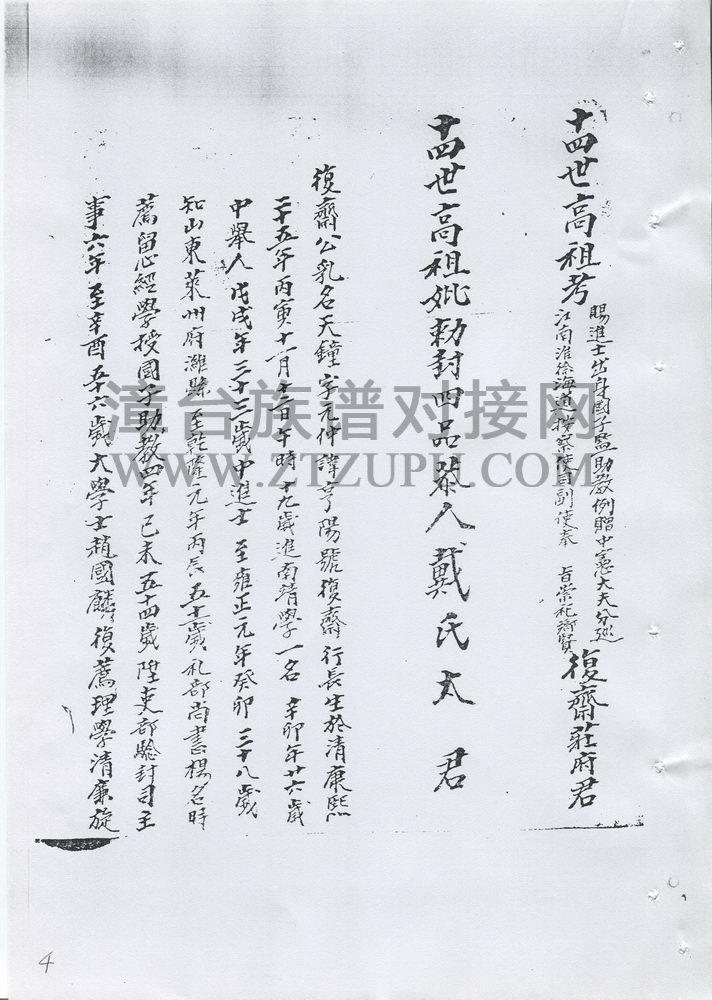 十四世高祖考
賜進士出身國子監助教例贈中憲大夫分巡
江南淮徐海道按察使司副使奉 旨崇祀鄉賢
復齋莊府君
十四世高祖妣勅封四品恭人戴氏太 君
復齋公乳名天鐘字元仲諱亨陽號復齋行長生於清康熙
二十五年丙寅十一月十二日午時十九歲進南靖學一名 辛卯年廿六歲
中舉人戊戌年三十三歲中進士至雍正元年癸卯三十八歲
知山東萊州府濰縣至乾隆元年丙辰五十一歲礼部尚書楊名時
薦留心經學授國子助教四年己未五十四歲陞吏部驗封司主
事六年至辛酉五十六歲大學士趙國麟復薦理學清廉旋
漳台族谱对接网
WWW.ZTZUPU.COM
4